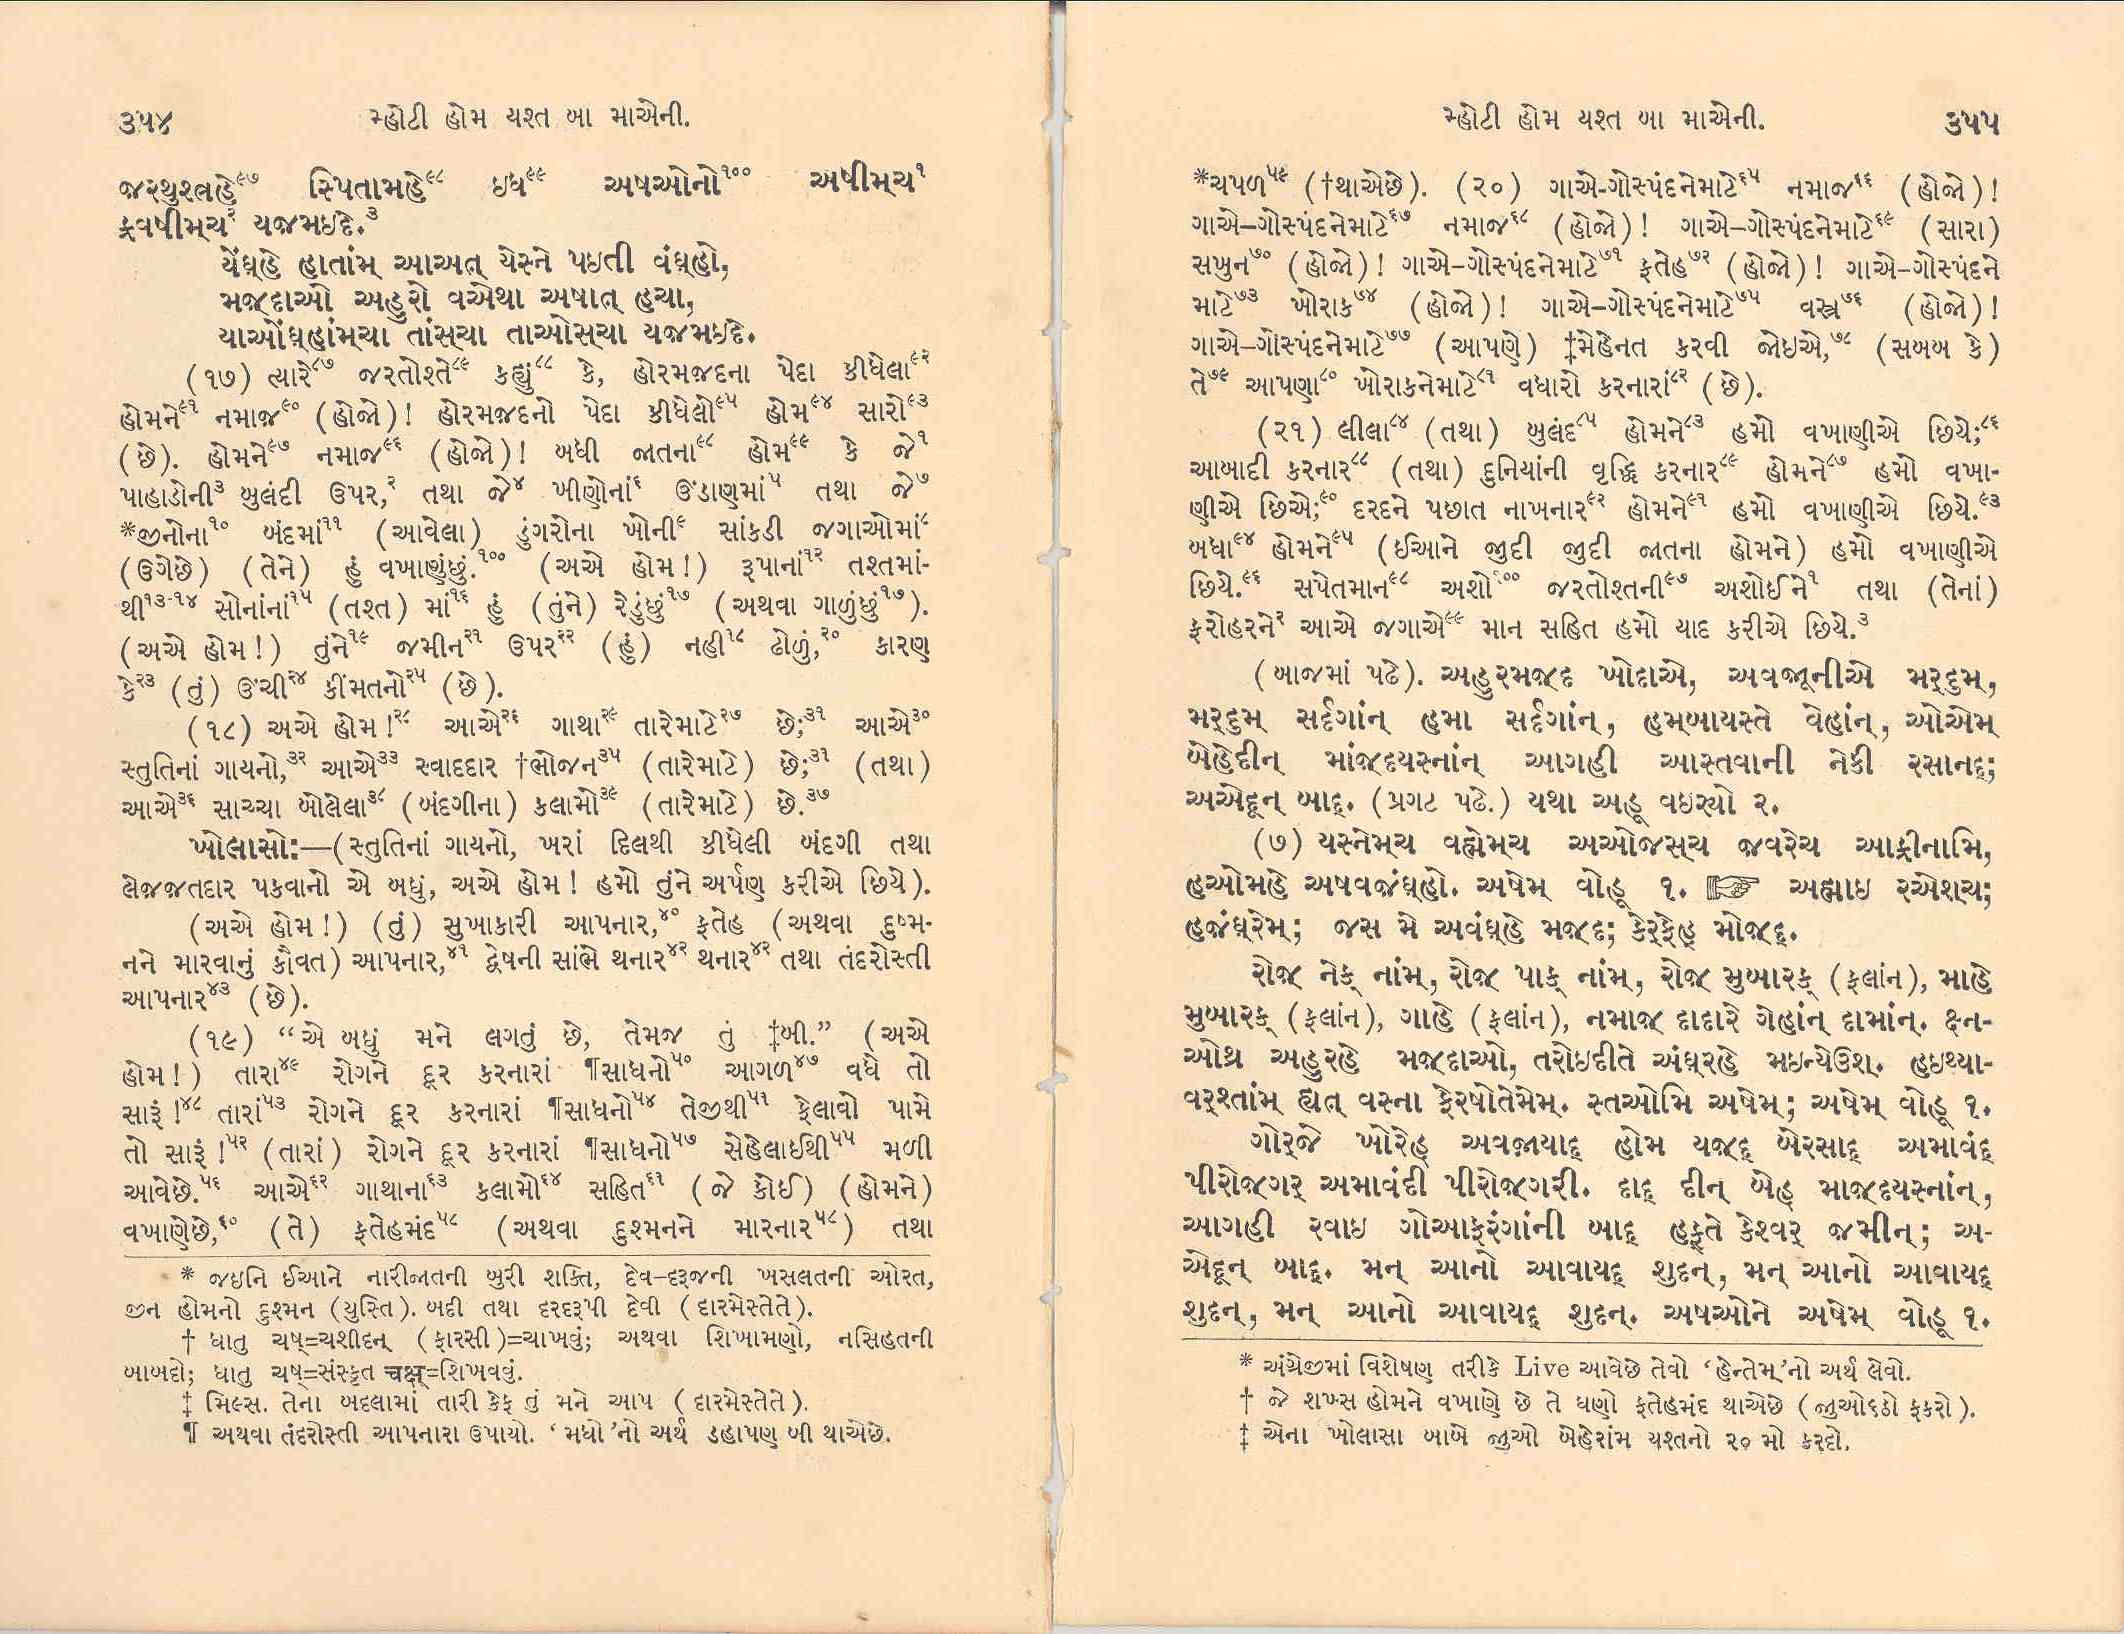 ૩૫૪
મ્હોટી હોમ યશ્ત બા માએની.
જરથુશ્ત્રહે૯૭ સ્પિતામહે૯૮ ઇધ૯૯ અષઓનો૧૦૦ અષીમ્‌ચ૧
ફ્રવષીમ્‌ચ૨ યજ઼મઇદે.૩
યેંઘ્હે હાતાંમ્ આઅત્ યેસ્ને પઇતી વંઘ્હો,
મજ઼્દાઓ અહુરો વએથા અષાત્ હચા,
યાઓંઘ્હાંમ્‌ચા તાંસ્‌ચા તાઓસ્‌ચા યજ઼મઇદે.
(૧૭) ત્યારે૮૭ જરતોશ્તે૮૯ કહ્યું૮૮ કે, હોરમજ઼દના પેદા કીધેલા૯૨
હોમને૯૧ નમાજ઼૯૦ (હોજો)! હોરમજ઼દનો પેદા કીધેલો૯૫ હોમ૯૪ સારો૯૩
(છે). હોમને૯૭ નમાજ૯૬ (હોજો)! બધી જાતના૯૮ હોમ૯૯ કે જે૧
પાહાડોની૩ બુલંદી ઉપર,૨ તથા જે૪ ખીણોનાં૬ ઊંડાણમાં૫ તથા જે૭
*જીનોના૧૦ બંદમાં૧૧ (આવેલા) ડુંગરોના ખોની૯ સાંકડી જગાઓમાં૮
(ઉગેછે) (તેને) હું વખાણુંછું.૧૦૦ (અએ હોમ!) રૂપાનાં૧૨ તશ્તમાં-
થી૧૩-૧૪ સોનાંનાં૧૫ (તશ્ત) માં૧૬ હું (તુંને) રેડુંછું૧૭ (અથવા ગાળુંછું૧૭).
(અએ હોમ!) તુંને૧૯ જમીન૨૧ ઉપર૨૨ (હું) નહી૧૮ ઢોળું,૨૦ કારણ
કે૨૩ (તું) ઊંચી૨૪ કીંમતનો૨૫ (છે).
(૧૮) અએ હોમ!૨૮ આએ૨૬ ગાથા૨૯ તારેમાટે૨૭ છે;૩૧ આએ૩૦
સ્તુતિનાં ગાયનો,૩૨ આએ૩૩ સ્વાદદાર †ભોજન૩૫ (તારેમાટે) છે;૩૧ (તથા)
આએ૩૬ સાચ્ચા બોલેલા૩૮ (બંદગીના) કલામો૩૯ (તારેમાટે) છે.૩૭
ખોલાસો:—(સ્તુતિનાં ગાયનો, ખરાં દિલથી કીધેલી બંદગી તથા
લેજ઼્જ઼તદાર પકવાનો એ બધું, અએ હોમ! હમો તુંને અર્પણ કરીએ છિયે).
(અએ હોમ!) (તું) સુખાકારી આપનાર,૪૦ ફતેહ (અથવા દુષ્મ-
નને મારવાનું કૌવત) આપનાર,૪૧ દ્વેષની સાંભે થનાર૪૨ થનાર૪૨ તથા તંદરોસ્તી
આપનાર૪૩ (છે).
(૧૯) “એ બધું મને લગતું છે, તેમજ તું ‡બી.” (અએ
હોમ!) તારા૪૯ રોગને દૂર કરનારાં ¶સાધનો૫૦ આગળ૪૭ વધે તો
સારૂં!૪૮ તારાં૫૩ રોગને દૂર કરનારાં ¶સાધનો૫૪ તેજીથી૫૧ ફેલાવો પામે
તો સારૂં!૫૨ (તારાં) રોગને દૂર કરનારાં ¶સાધનો૫૭ સેહેલાઇથી૫૫ મળી
આવેછે.૫૬ આએ૬૨ ગાથાના૬૩ કલામો૬૪ સહિત૬૧ (જે કોઈ) (હોમને)
વખાણેછે,૬૦ (તે) ફતેહમંદ૫૮ (અથવા દુશ્મનને મારનાર૫૮) તથા
* જઇનિ ઈઆને નારીજાતની બુરી શક્તિ, દેવ-દરૂજની ખસલતની ઓરત,
જીન હોમનો દુશ્મન (યુસ્તિ). બદી તથા દરદરૂપી દેવી (દારમેસ્તેતે).
† ધાતુ ચષ્=ચશીદન્ (ફારસી)=ચાખવું; અથવા શિખામણો, નસિહતની
બાબદો; ધાતુ ચષ્=સંસ્કૃત चक्ष्=શિખવવું.
‡ મિલ્સ. તેના બદલામાં તારી કેફ તું મને આપ (દારમેસ્તેતે).
¶ અથવા તંદરોસ્તી આપનારા ઉપાયો. ‘મધો’નો અર્થ ડહાપણ બી થાએછે.
મ્હોટી હોમ યશ્ત બા માએની.
૩૫૫
*ચપળ૫૯ (†થાએછે). (૨૦) ગાએ-ગોસ્પંદનેમાટે૬૫ નમાજ૬૬ (હોજો)!
ગાએ-ગોસ્પંદનેમાટે૬૭ નમાજ૬૮ (હોજો)! ગાએ-ગોસ્પંદનેમાટે૬૯ (સારા)
સખુન૭૦ (હોજો)! ગાએ-ગોસ્પંદનેમાટે૭૧ ફતેહ૭૨ (હોજો)! ગાએ-ગોસ્પંદને
માટે૭૩ ખોરાક૭૪ (હોજો)! ગાએ-ગોસ્પંદનેમાટે૭૫ વસ્ત્ર૭૬ (હોજો)!
ગાએ-ગોસ્પંદનેમાટે૭૭ (આપણે) ‡મેહેનત કરવી જોઇએ,૭૮ (સબબ કે)
તે૭૯ આપણા૮૦ ખોરાકનેમાટે૮૧ વધારો કરનારાં૮૨ (છે).
(૨૧) લીલા૮૪ (તથા) બુલંદ૮૫ હોમને૮૩ હમો વખાણીએ છિયે;૮૬
આબાદી કરનાર૮૮ (તથા) દુનિયાંની વૃદ્ધિ કરનાર૮૯ હોમને૮૭ હમો વખા-
ણીએ છિએ;૯૦ દરદને પછાત નાખનાર૯૨ હોમને૯૧ હમો વખાણીએ છિયે.૯૩
બધા૯૪ હોમને૯૫ (ઈઆને જુદી જુદી જાતના હોમને) હમો વખાણીએ
છિયે.૯૬ સપેતમાન૯૮ અશો૧૦૦ જરતોશ્તની૯૭ અશોઈને૧ તથા (તેનાં)
ફરોહરને૨ આએ જગાએ૯૯ માન સહિત હમો યાદ કરીએ છિયે.૩
(બાજમાં પઢે). અહુરમજ઼્દ ખોદાએ, અવજ઼ૂનીએ મર્દુમ્,
મર્દુમ્ સર્દગાંન્ હમા સર્દગાંન્, હમ્બાયસ્તે વેહાંન્, ઓએમ્
બેહેદીન્ માંજ઼્દયસ્નાંન્ આગહી આસ્તવાની નેકી રસાનદ્;
અએદૂન્ બાદ્. (પ્રગટ પઢે.) યથા અહૂ વઇર્યો ૨.
(૭) યસ્નેમ્‌ચ વહ્મેમ્‌ચ અઓજસ્‌ચ જ઼વરેચ આફ્રીનામિ,
હઓમહે અષવજ઼ંઘ્હો. અષેમ્ વોહૂ ૧. ☞ અહ્માઇ રએશ્‌ચ;
હજ઼ંઘ્રેમ્; જસ મે અવંઘ્હે મજ઼્દ; કેર્ફેહ્ મોજ઼્દ્.
રોજ઼ નેક્ નાંમ્, રોજ઼ પાક્ નાંમ્, રોજ઼ મુબારક્ (ફલાંન), માહે
મુબારક્ (ફલાંન), ગાહે (ફલાંન), નમાજ઼ દાદારે ગેહાંન્ દામાંન્. ક્ષ્ન-
ઓથ્ર અહુરહે મજ઼્દાઓ, તરોઇદીતે અંઘ્રહે મઇન્યેઉશ્. હઇથ્યા-
વર્શ્તાંમ્ હ્યત્ વસ્ના ફેરષોતેમેમ્. સ્તઓમિ અષેમ્; અષેમ્ વોહૂ ૧.
ગોર્જે ખોરેહ્ અવજ઼ાયાદ્ હોમ યજ઼દ્ બેરસાદ્ અમાવંદ્
પીરોજ઼ગર્ અમાવંદી પીરોજ઼્ગરી. દાદ્ દીન્ બેહ્ માજ઼્દયસ્નાંન્,
આગહી રવાઇ ગોઆફરંગાંની બાદ્ હફ્તે કેશ્વર્ જમીન્; અ-
એદૂન્ બાદ્. મન્ આનો આવાયદ્ શુદન્, મન્ આનો આવાયદ્
શુદન્, મન્ આનો આવાયદ્ શુદન્. અષઓને અષેમ્ વોહૂ ૧.
* અંગ્રેજીમાં વિશેષણ તરીકે Live આવેછે તેવો ‘હેન્તેમ્’નો અર્થ લેવો.
† જે શખ્સ હોમને વખાણે છે તે ઘણો ફતેહમંદ થાએછે (જુઓ૬ઠો ફકરો).
‡ એના ખોલાસા બાબે જુઓ બેહેરાંમ યશ્તનો ૨૦ મો કરદો.